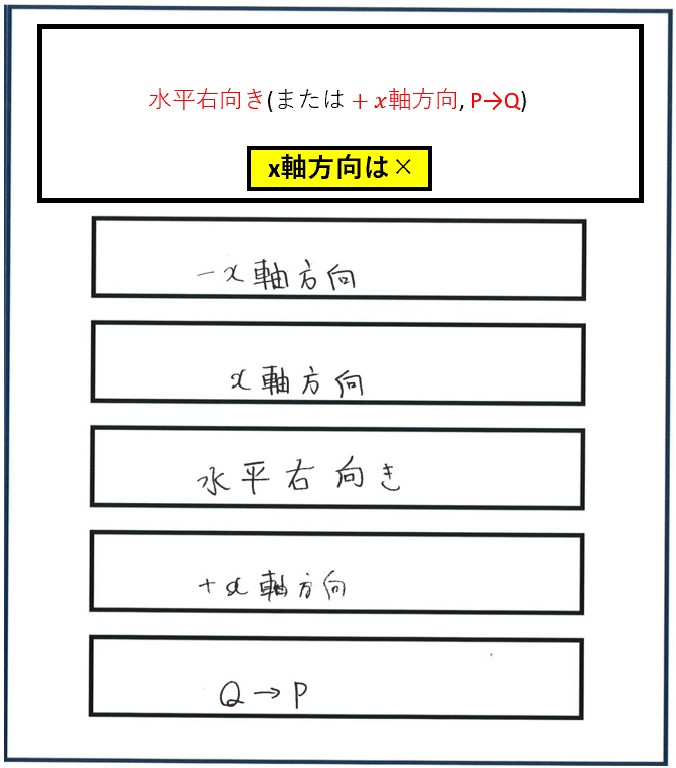 水平右向き(または＋x軸方向, P→Q)
x軸方向は×
－x軸方向
x軸方向
水平右向き
＋x軸方向
Q→P